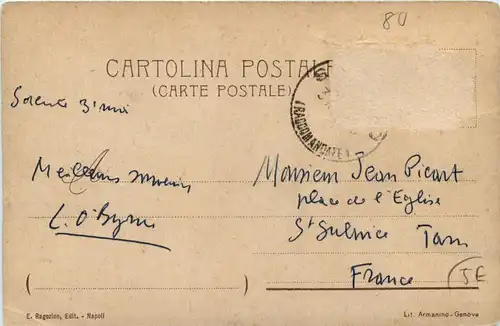 80
CARTOLINA POSTALE
(CARTE POSTALE)
(RACCOMANDATE)
Meilleurs souvenirs
L. O'Byrne
Monsieur Jean Picart
place de l'Eglise
St Sulpice Tarn
France
JE
E. Ragozino, Edit. - Napoli
Lit. Armanino - Genova